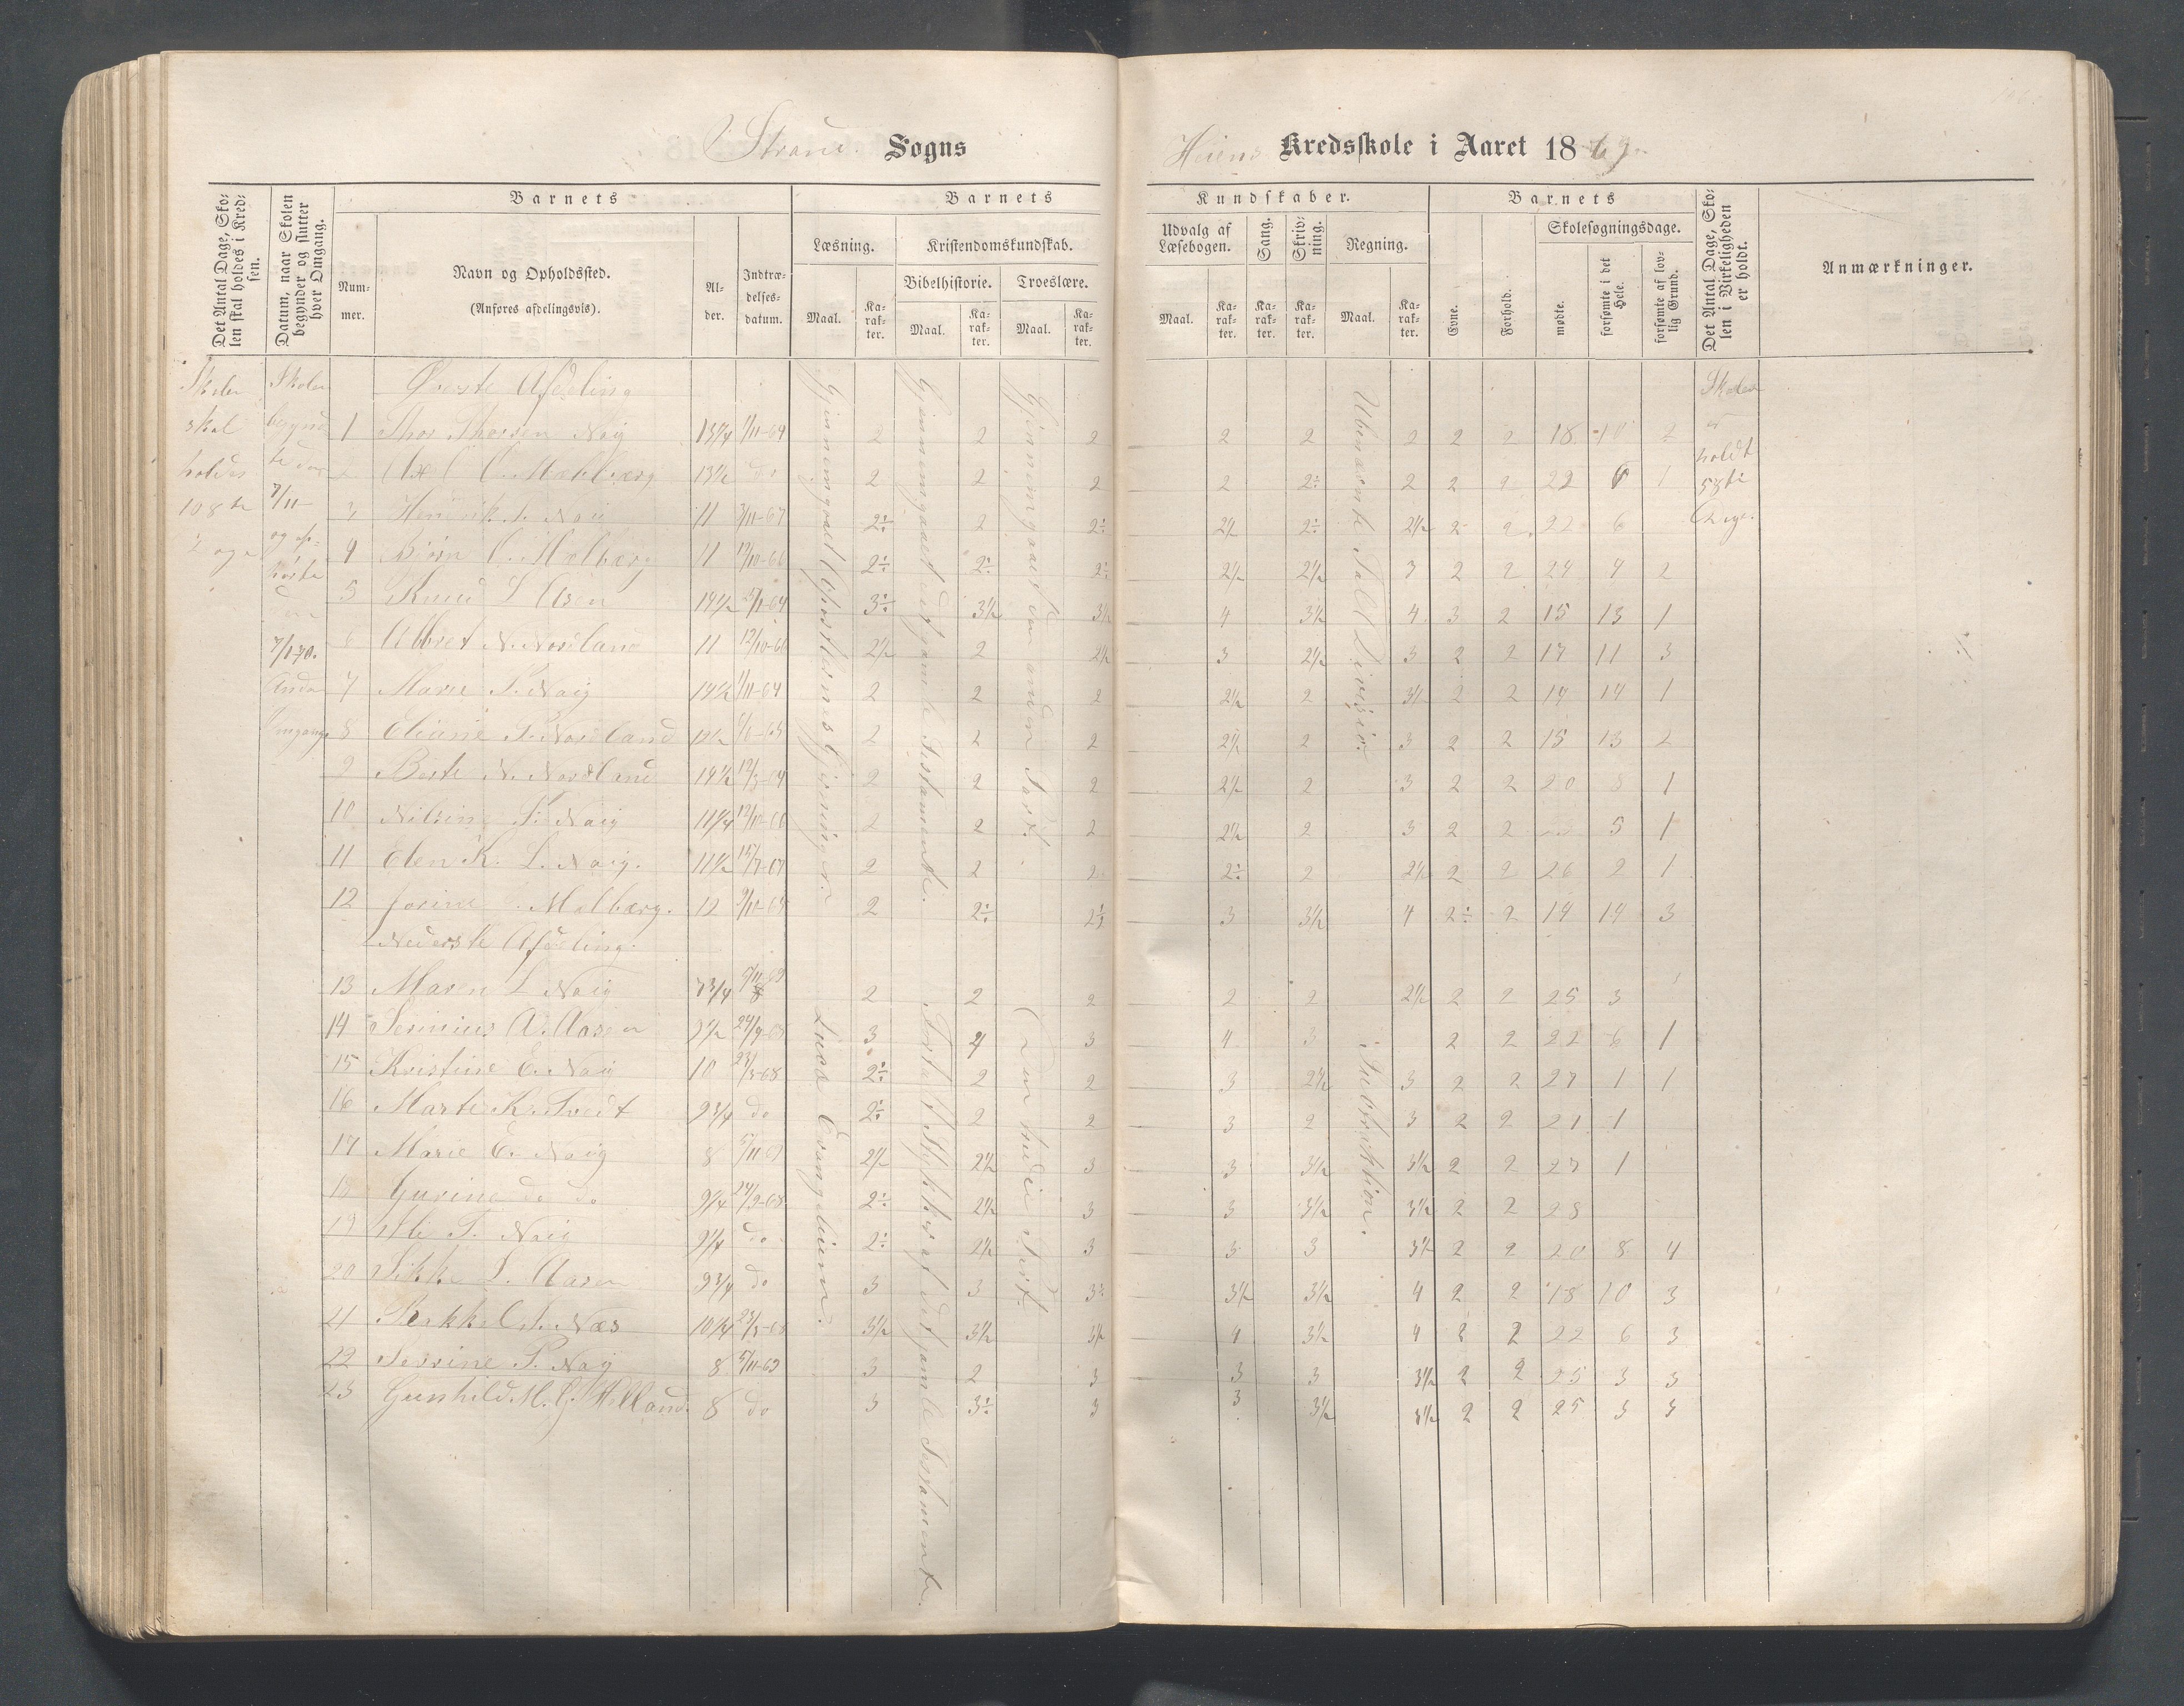 Strand Sogns
Heiens Kredsskole i Aaret 1869
Det Antal Dage, Skolen skal holdes i Kredsen.
Datum, naar Skolen begynder og slutter hver Omgang.
Barnets
Nummer.
Navn og Opholdssted.
(Anføres afdelingsvis).
Alder.
Indtrædelsesdatum.
Barnets
Læsning.
Maal.
Karakter.
Kristendomskundskab.
Bibelhistorie.
Maal.
Karakter.
Troeslære.
Maal.
Karakter.
Kundskaber.
Udvalg af Læsebogen.
Maal.
Karakter.
Sang.
Karakter.
Skrivning.
Karakter.
Regning.
Maal.
Karakter.
Barnets
Evne.
Forhold.
Skolesøgningsdage.
mødte.
forsømte i det Hele.
forsømte af lovlig Grund.
Det Antal Dage, Skolen i Virkeligheden er holdt.
Anmærkninger.
Skolen skal holdes 108 te Dage
Skolen begyndte den 7/11 og ophørte den 7/1-70.
Anden Omgang
Øverste Afdeling
1 Thor Thorsen Naig 13 3/4 1/11-64 2 2 2 2 2 2 2 2 18 10 2
2 13 1/2 do 2 2 2 2 2÷ 2 2 2 22 6 1
3 Henrik Naig 11 7/11-67 2÷ 2 2÷ 2 1/2 2÷ 2 1/2 2 2 22 6
4 Bjørn Molberg 11 12/10-66 2÷ 2÷ 2÷ 2 1/2 2 1/2 3 2 2 24 4 2
5 Knud L. Aasen 14 1/2 3÷ 3 1/2 3 1/2 4 3 1/2 4 3 2 15 13 1
6 N. Nordland 11 12/10-66 2 1/2 2 2 1/2 3 2 1/2 3 2 2 17 11 3
7 Marie T. Naig 14 1/2 1/11-64 2 2 2 2 1/2 2 3 1/2 2 2 14 14 1
8 Eliane T. Nordland 2 2 2 2 1/2 2 3 2 2 15 13 2
9 Berte N. Nordland 14 1/2 2 2 2 2 1/2 2 3 2 2 20 8 1
10 Nilsine T. Naig 11 1/4 12/10-66 2 2 2 2 1/2 2 3 2 2 5 1
11 Elen K. L. Naig. 11 1/2 15/7-67 2 2 2 2÷ 2 2 1/2 2 2 26 2 1
12 Jorine Molberg. 12 9/10-65 2 2÷ 2÷ 3 3 1/2 4 2÷ 2 14 14 3
Nederste Afdeling.
13 Maren L. Naig 7 3/4 2 2 2 2 2 2 1/2 2 2 25 3
14 Serinius A. Aasen 24/9-68 3 3 4 3 2 2 22 6 1
15 Kristine E. Naig 10 23/3-68 2÷ 2 2 3 2 1/2 3 2 2 27 1 1
16 Marte K. Tvedt 9 3/4 do 2÷ 2 2 3 2 3 2 2 21 1
17 Marie E. Naig 8 5/11-69 2 1/2 2 1/2 3 3 3 1/2 3 1/2 2 2 27 1
18 Gurine do do 9 1/4 24/9-68 2÷ 2 1/2 3 3 3 1/2 3 1/2 2 2 28
19 T. Naig 9 1/4 do 2÷ 2 1/2 3 3 3 3 1/2 2 2 20 8 4
20 Sikke L. Aasen 9 3/4 do 3 3 3÷ 3 1/2 3 1/2 4 2 2 18 10 3
21 Næs 10 1/4 23/3-68 3 1/2 3 1/2 3 1/2 4 3 1/2 4 2 2 22 6 3
22 Serine T. Naig 8 5/11-69 3 2 3 3 3 3 1/2 2 2 25 3 3
23 Gunhild M. G. Helland. 8 do 3 3÷ 3 3 3 1/2 3 1/2 2 2 25 3 3
Gjennemgaaet Apostlernes Gjerninger.
Lucæ Evangelium.
Gjennemgaaet det gamle Testamente.
Fortalt Stykker af det gamle Testamente.
Gjennemgaaet den anden Part.
Den tredie Part.
Ubenævnte Tal Division.
Subtraktion.
Skolen er holdt 58 te Dage.